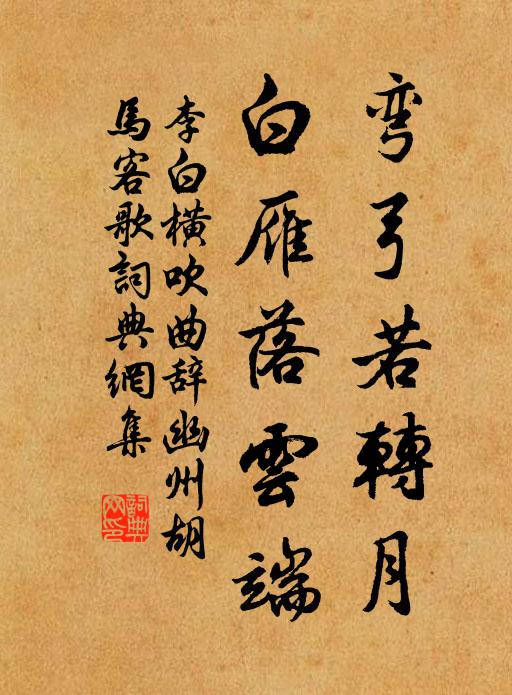 弯弓若轉月
白雁落雲端
李白橫吹曲辞幽州胡
馬客歌詞典網集
詞典
网印